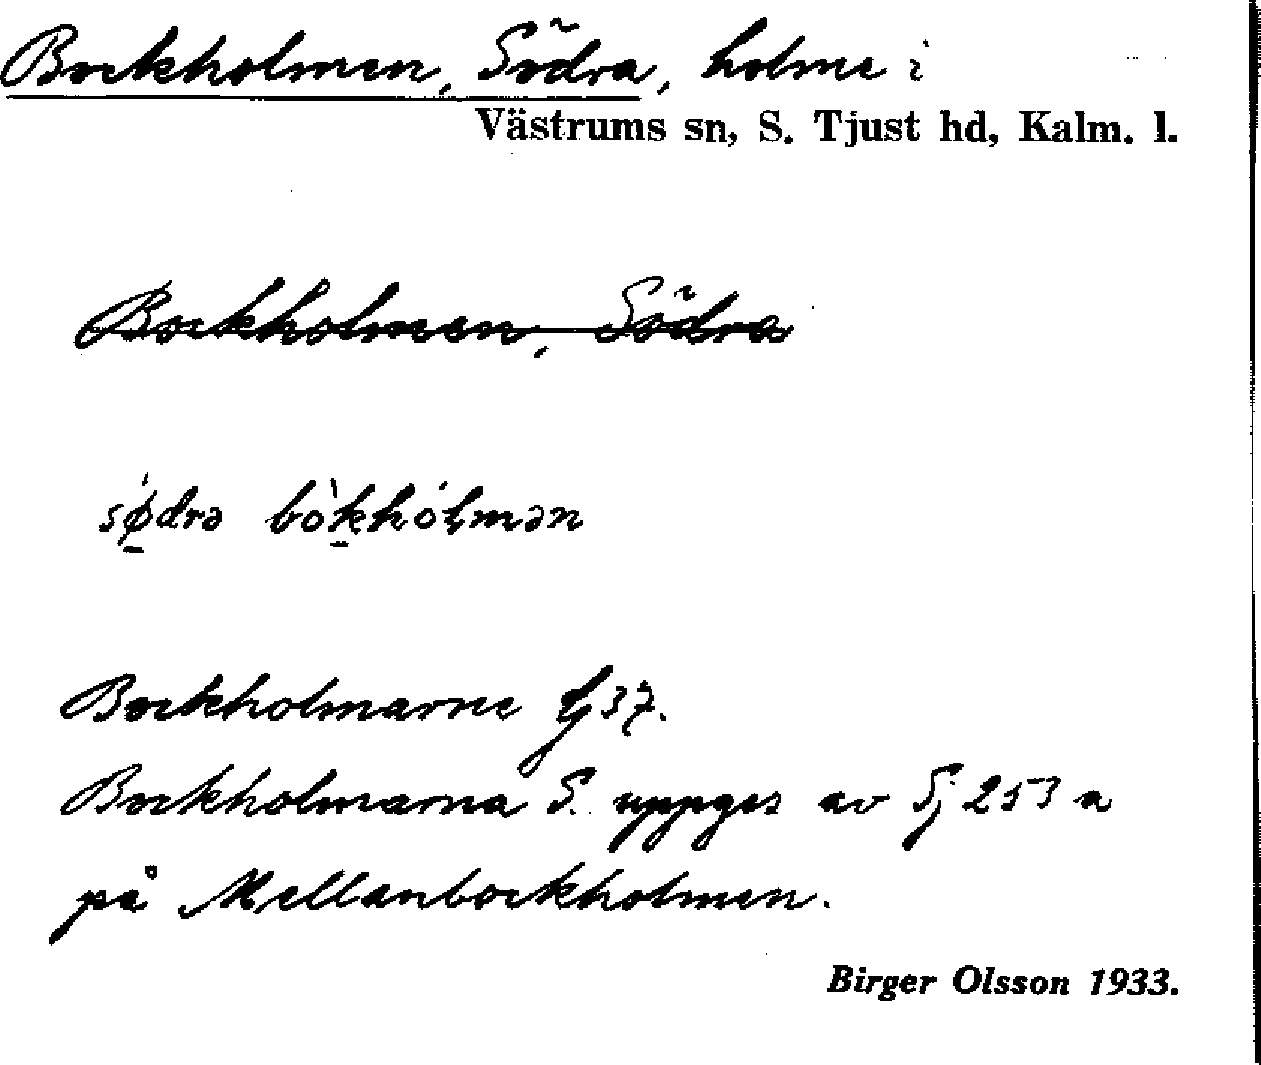 Bockholmen, Södra, holme i
Västrums sn, S. Tjust hd, Kalm. l.
Bockholmen, Södra
sǿdrə bòkhólmən
Bockholmarne Ej 37.
Bockholmarna S. uppges av Sj 253 a
på Mellanbockholmen.
Birger Olsson 1933.